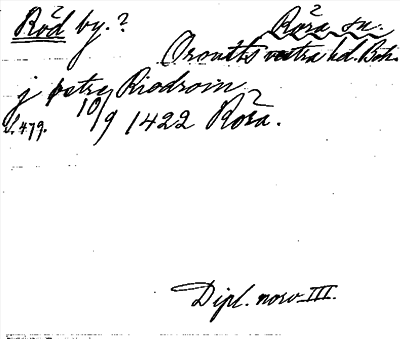 Röd by. ?
Röza sn.
Orousts vestra hd. Boh.
j vetra Riodroin
S. 479. 10/9 1422 Röza.
Dipl. norv III.